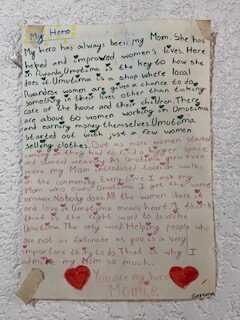 My Hero
My hero has always been my Mom. She has
helped and improved women's lives. Here
in Rwanda, Umutima is the key to how she
does it. Umutima is a shop where local
Rwandese women are given a chance to do
something in their lives other than taking
care of the house and their children. There
are about 60 women working in Umutima
and earning money themselves. Umutima
started out with just a few women
selling clothes. Due as more women started
coming in they had to find a bigger space
and started weaving. As Umutima grew even
more my Mom introduced tourism walks
in the community. Every time I ask my
Mom who owns Umutima I get the same
answer. Nobody does. All the women have
and love in. Umutima means heart I think
that is the right word to describe
Umutima. The only word. Helping people who
are not as fortunate as you is a very
important thing to do. That is why I
admire my Mom so much.
You are my hero
Momie
Gemma